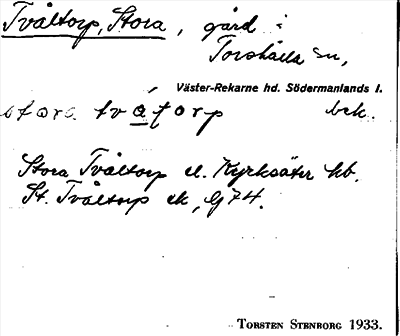 Tvåltorp, Stora, gård i
Torshälla sn,
Väster-Rekarne hd. Södermanlands l.
bek.
Stora Tvåltorp el. Kyrksäter kb.
St. Tvåltorp ek, Gj 74.
TORSTEN STENBORG 1933.